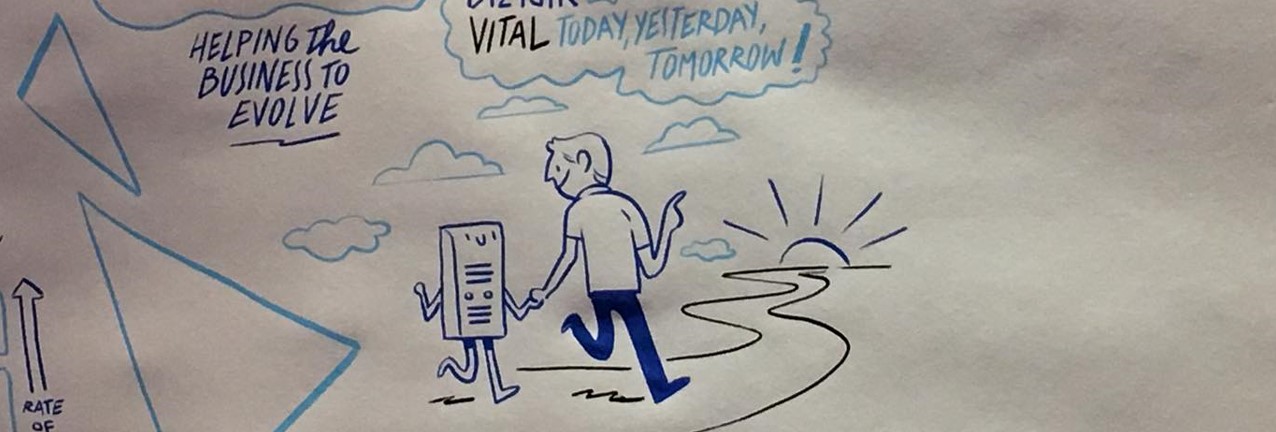 HELPING the
BUSINESS TO
EVOLVE
VITAL TODAY, YESTERDAY,
TOMORROW!
RATE
OF